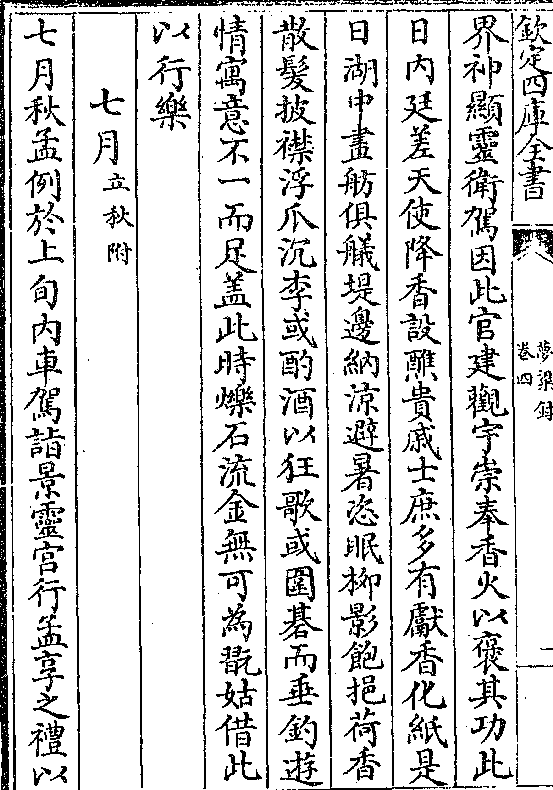 欽定四庫全書
夢粱録
卷四
一
界神顯靈衛駕因此官建觀宇崇奉香火以褒其功此
日内廷差天使降香設醮貴戚士庶多有獻香化紙是
日湖中畫舫俱艤堤邊納涼避暑恣眠柳影飽挹荷香
散髮披襟浮爪沉李或酌酒以狂歌或圍碁而垂釣遊
情寓意不一而足盖此時爍石流金無可為翫姑借此
以行樂
七月立秋附
七月秋孟例於上旬内車駕詣景靈宫行孟享之禮以